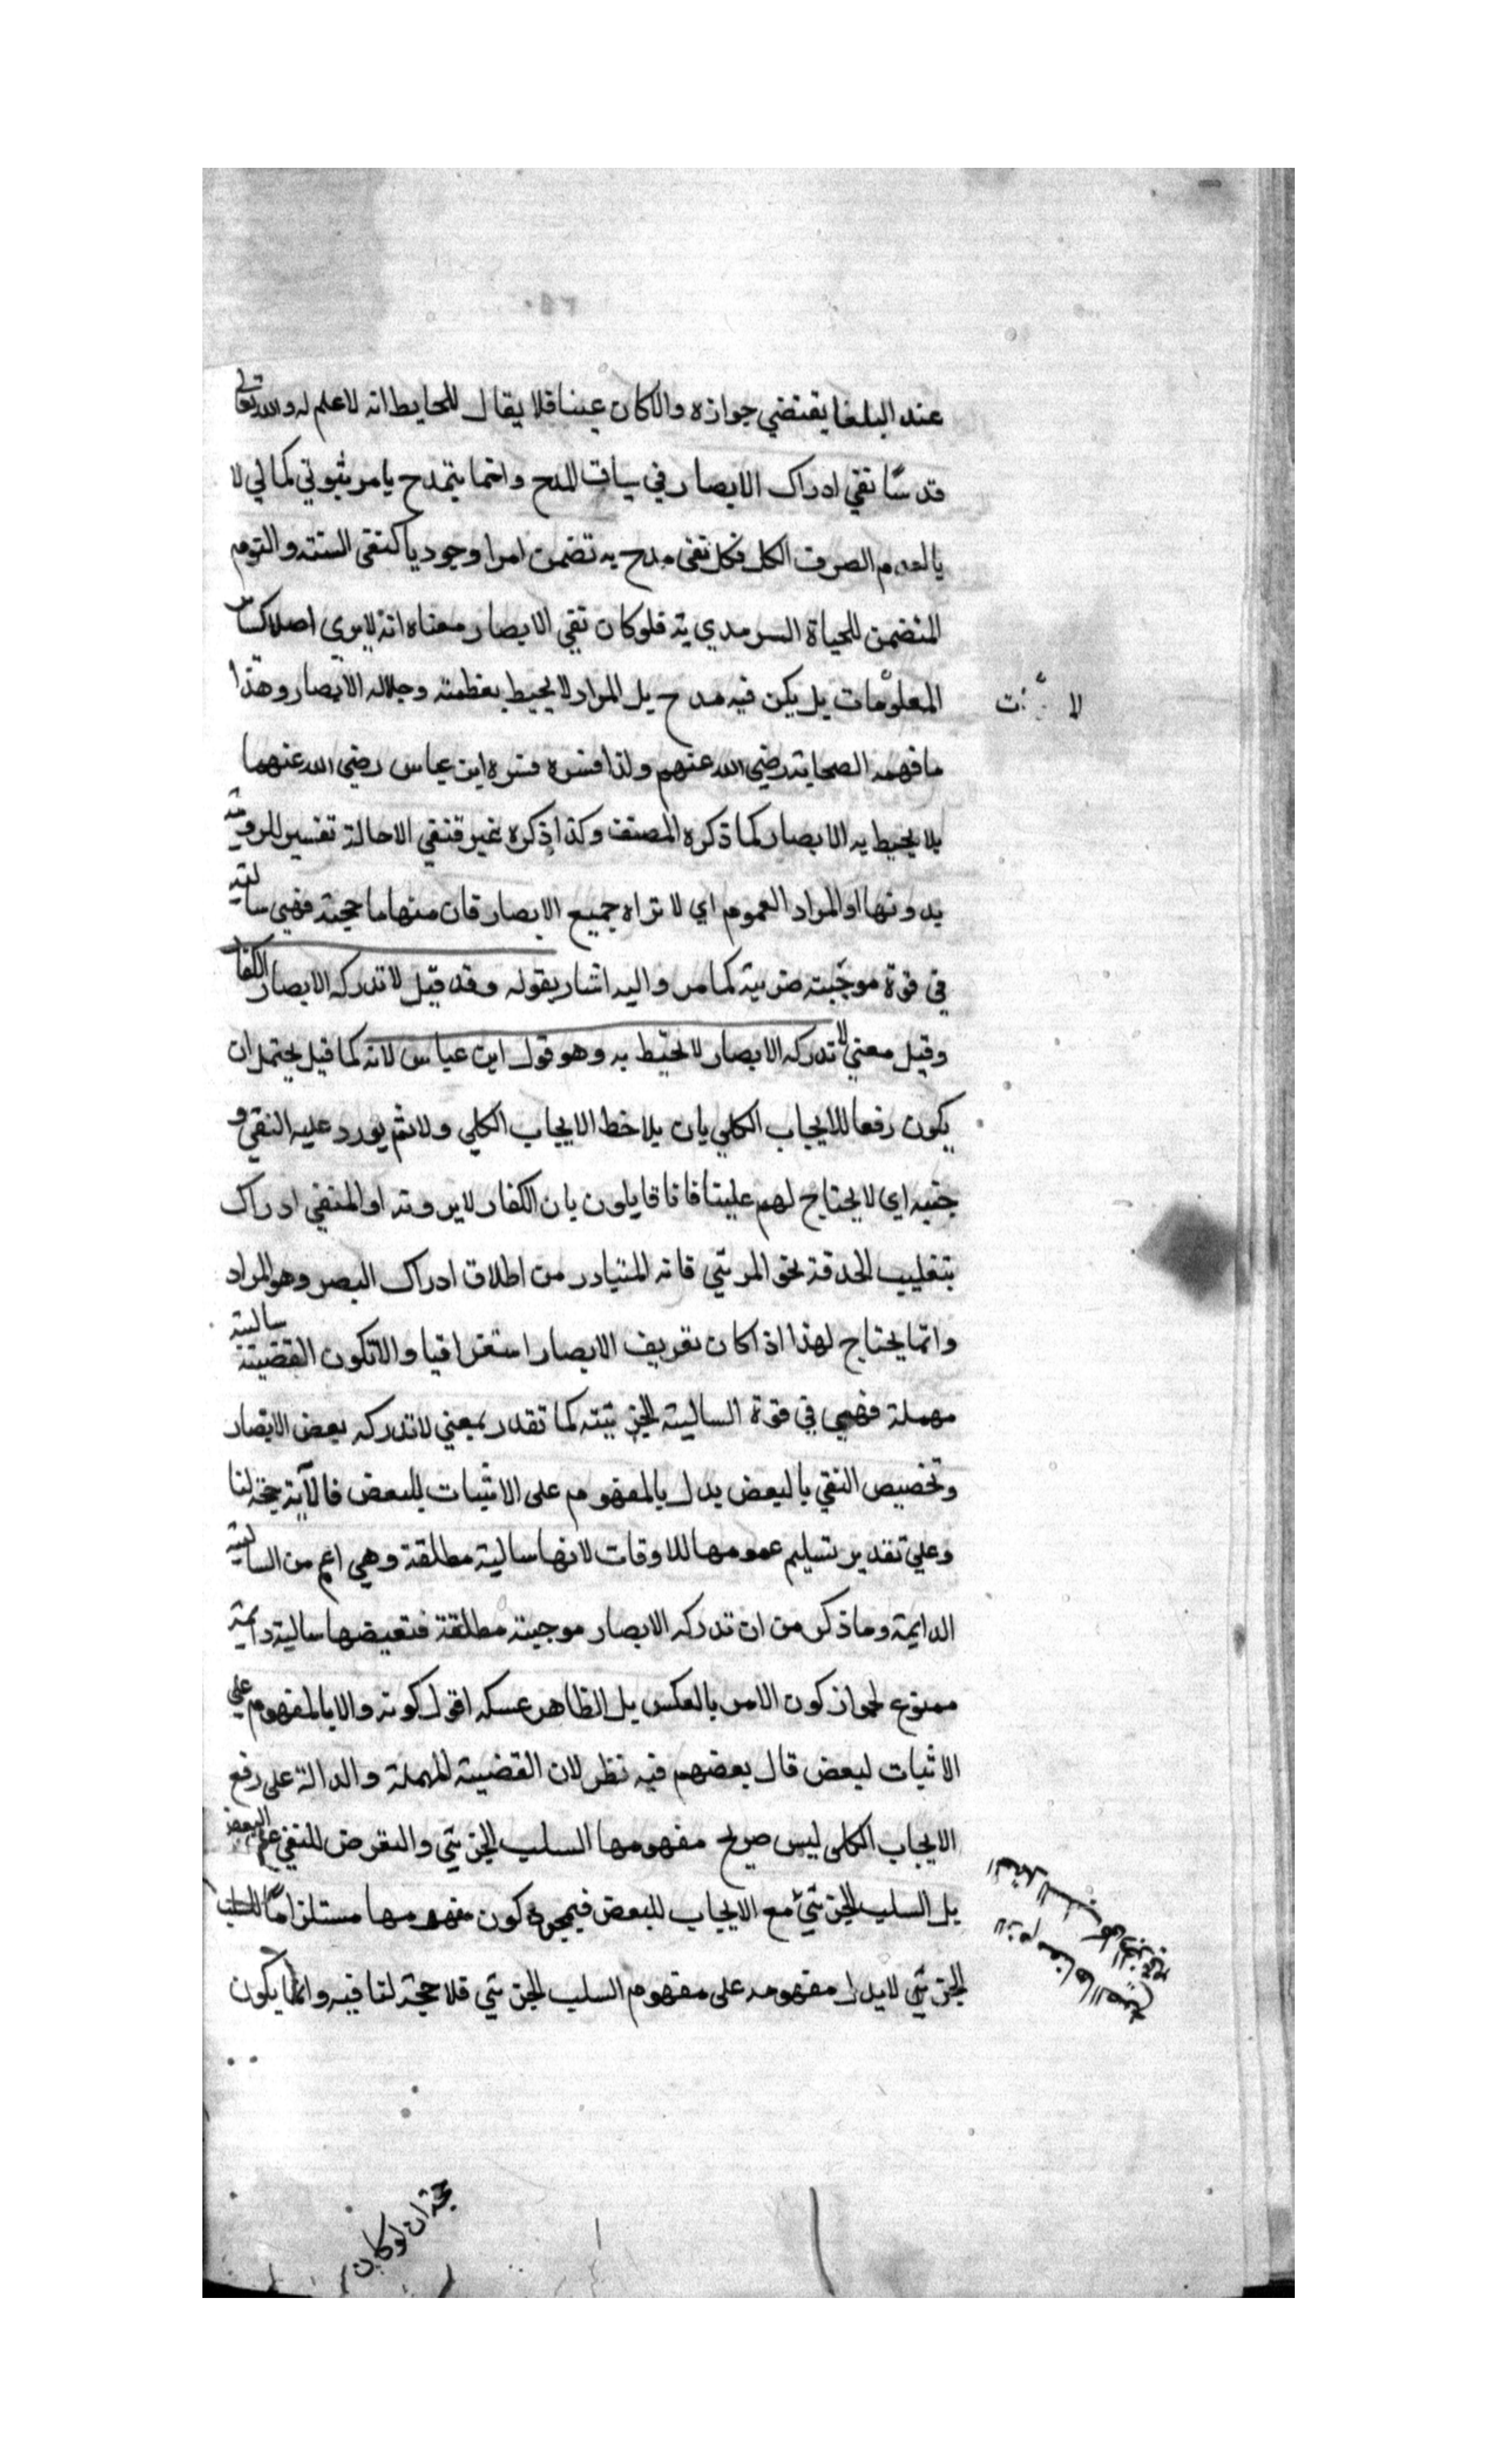 عند البلغا يقتضي جوازه والاكان عبثا فلا يقال للحايط انه لا علم له والله تعالى
قد ساق نفي ادراك الابصار في سياق المدح وانما يتمدح بامر ثبوتي كمالي لا
بالعدم الصرف الكل فكل نفي مدح به تضمن امرا وجوديا كنفي السنة والنوم
المتضمن للحياة السرمدي ية فلو كان نفي الابصار معناه انه لا يرى اصلا كساير
المعلومات يل يكن فيه مدح بل المراد لا يحيط بعظمته وجلاله الابصار وهذا
ما فهمه الصحابة رضي الله عنهم ولذا فسره فسره ابن عباس رضي الله عنهما
بلا يحيط به الابصار كما ذكره المصنف وكذا ذكره غير فنفي الاحالة تفسير للروية
بدونها او المراد العموم اي لا تراه جميع الابصار فان منها ما حجبته فهي سالبة
في قوة موجبة جزيية كما مر واليه اشار بقوله وقد قيل لا تدركه الابصار الكفار
وقيل معني لا تدركه الابصار لا تحيط به وهو قول ابن عباس لانه كما قيل يحتمل ان
يكون رفعا للايجاب الكلي بان يلاحظ الايجاب الكلي ولا ثم يورد عليه النفي و
جنيه اي لا يحتاج لهم علينا فانا قايلون بان الكفار لا يرونه او المنفي ادراك
بتغليب الحدقة نحو المرئي فانه المتبادر من اطلاق ادراك البصر وهو المراد
وانما يحتاج لهذا اذا كان تعريف الابصار استغراقيا والا تكون القضية سالبة
مهملة فهي في قوة السالبة الجزئية كما تقدر بمعني لا تدركه بعض الابصار
وتخصيص النفي بالبعض يدل بالمفهوم على الاثبات للبعض فالآية حجة لنا
وعلي تقدير تسليم عمومها للاوقات لانها سالبة مطلقة وهي اعم من السالبة
الدايمة وما ذكر من ان تدركه الابصار موجبة مطلقة فنقيضها سالبة دايمة
ممنوع لجواز كون الامر بالعكس بل الظاهر عسكه اقول كونه والا بالمفهوم علي
الاثبات لبعض قال بعضهم فيه نظر لان القضية المهملة والدالة على رفع
الايجاب الكلي ليس صريح مفهومها السلب الجزيئي والتعرض للنفي عن البعض
بل السلب الجزئي مع الايجاب للبعض فيجوز كون مفهومها مستلزما للسلب
الجزئي لا يدل مفهومه على مفهوم السلب الجزئي فلا حجة لنا فيه وانما يكون
حجة ان لو كان